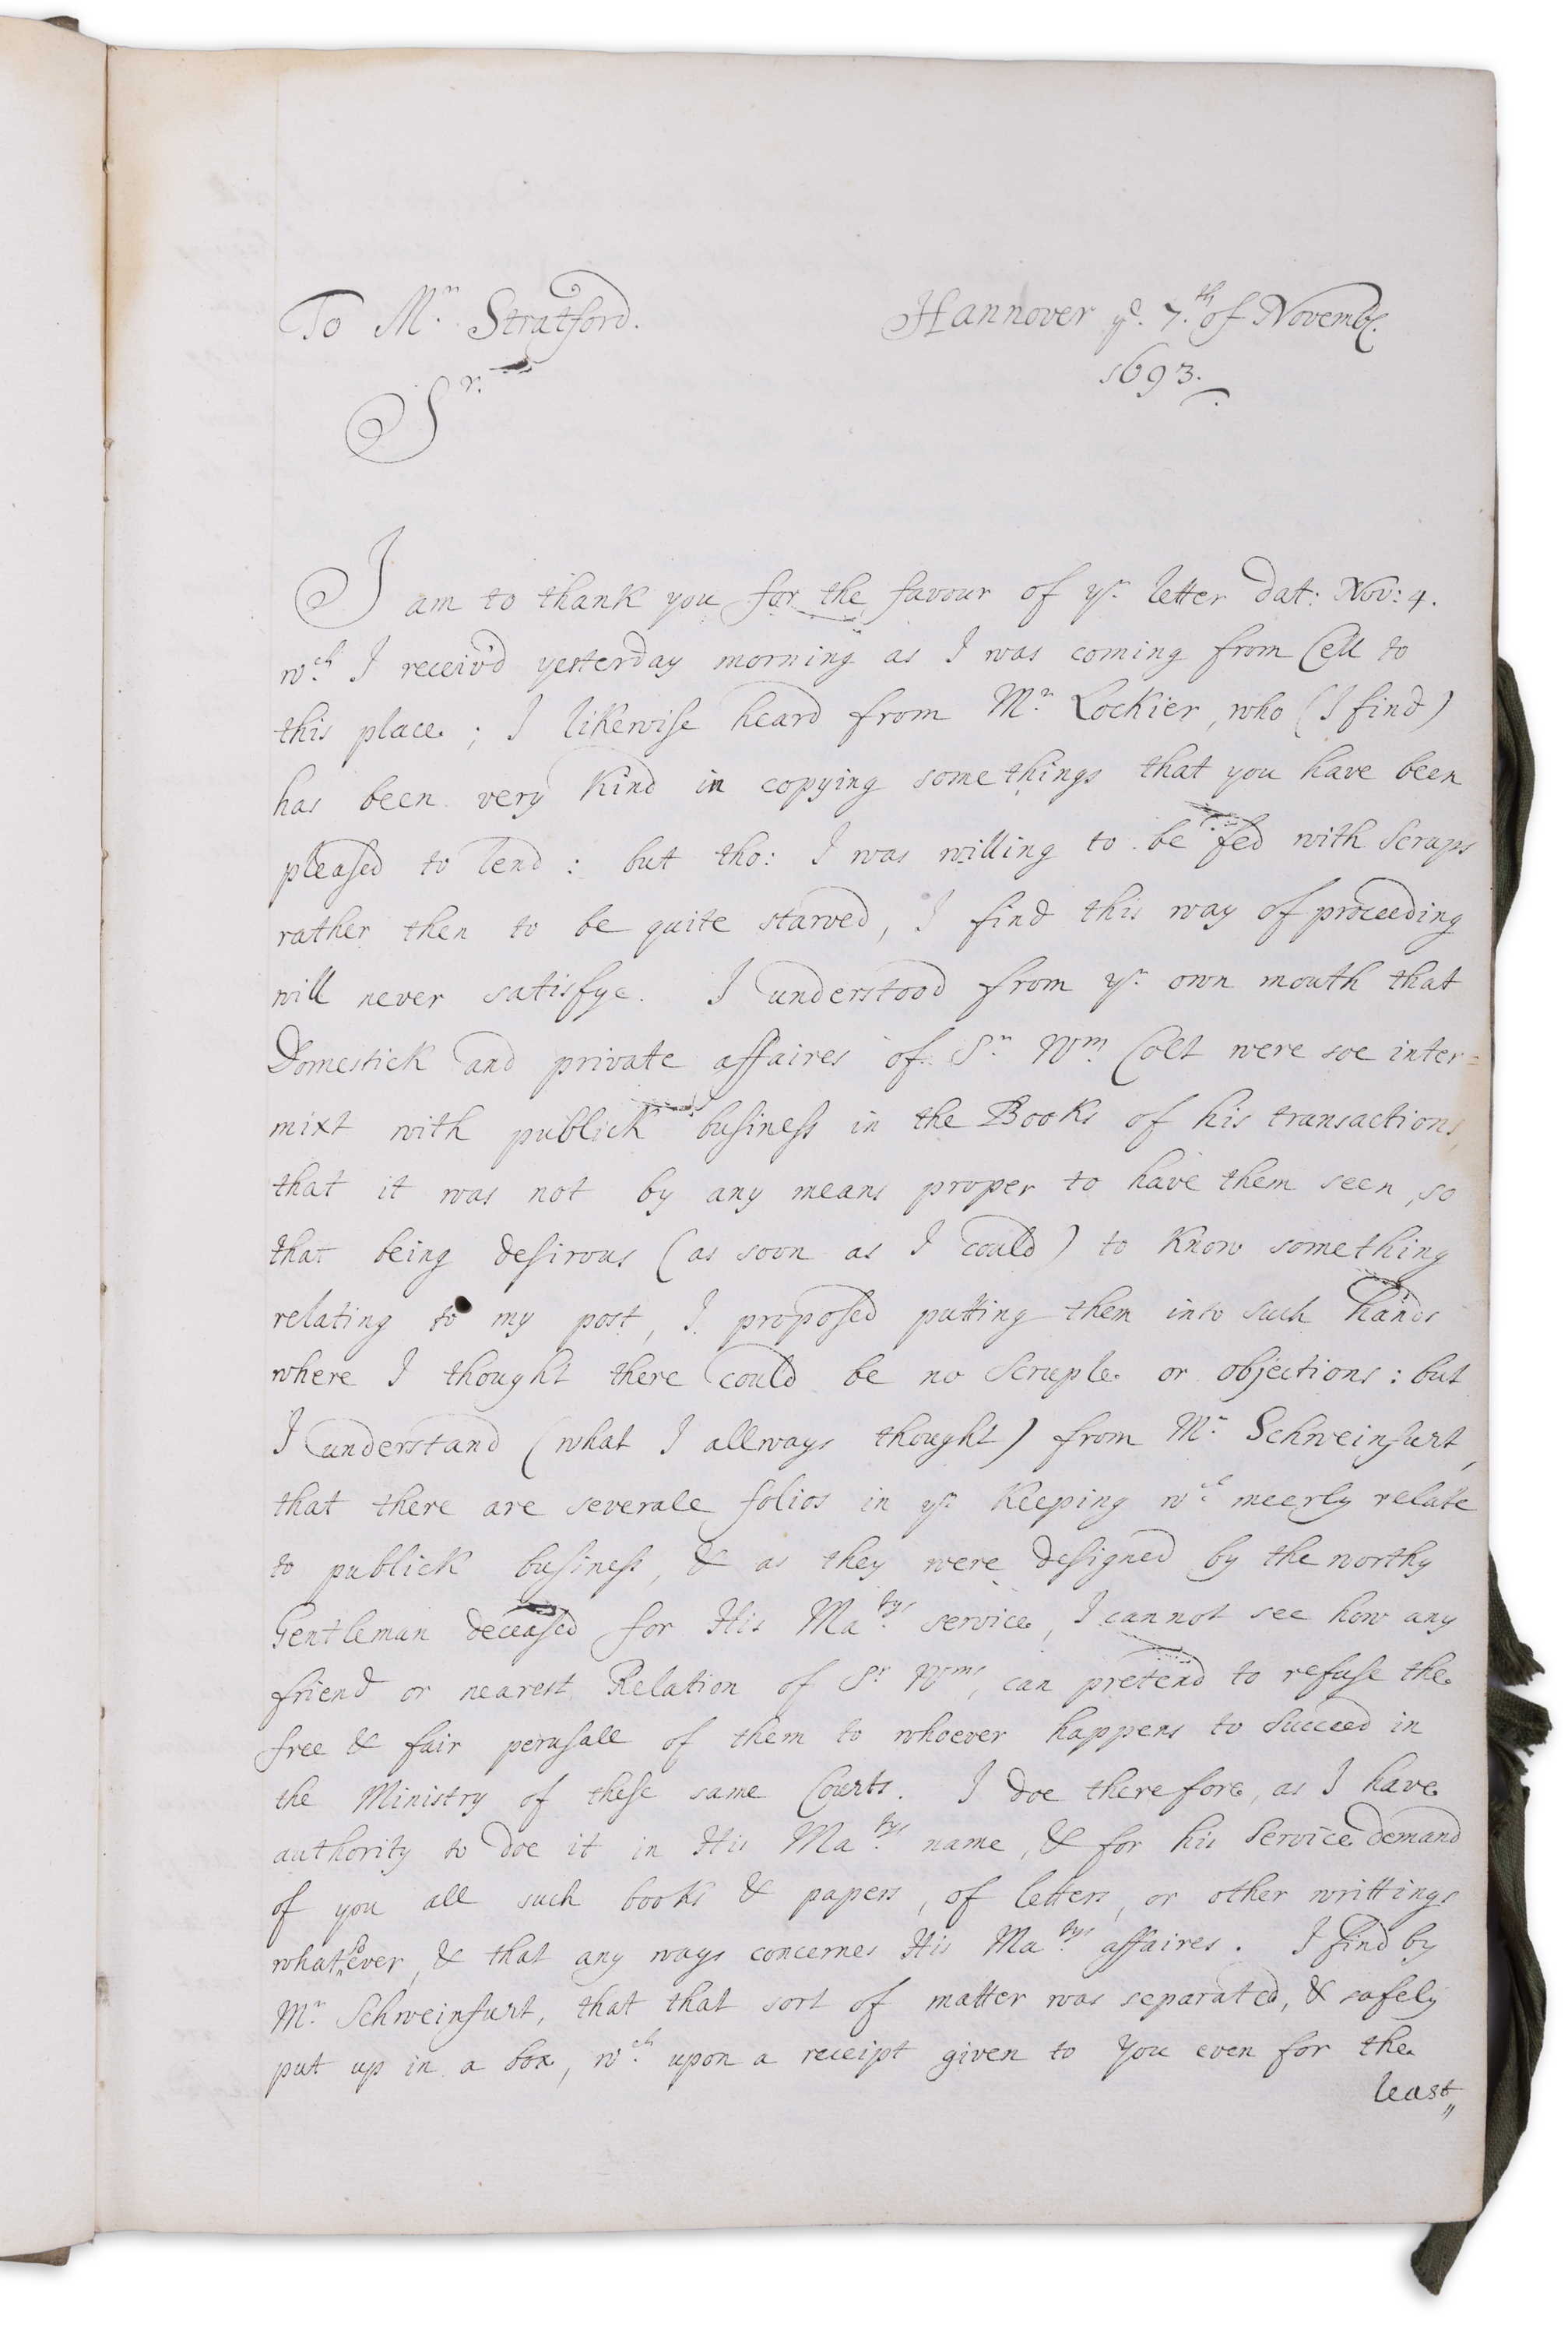 To Mr. Stratford.
Hannover ye. 7.th of Novemb.
1693.
Sr.
I am to thank you for the favour of yr. letter dat: Nov: 4.
wch. I receiv'd yesterday morning as I was coming from Cell to
this place ; I likewise heard from Mr. Lockier, who (I find)
has been very kind in copying some things that you have been
pleased to lend : but tho: I was willing to be fed with scraps
rather then to be quite starved, I find this way of proceeding
will never satisfye. I understood from yr. own mouth that
Domestick and private affaires of Sr. Wm. Colt were soe inter=
mixt with publick business in the Books of his transactions,
that it was not by any means proper to have them seen, so
that being desirous (as soon as I could) to know something
relating to my post, I proposed putting them into such hands
where I thought there could be no scruple or objections : but
I understand (what I allways thought) from Mr. Schweinfurt,
that there are severale folios in yr. keeping wch. meerly relate
to publick business, & as they were designed by the worthy
Gentleman deceased for His Matys. service, I can not see how any
friend or nearest Relation of Sr. Wms, can pretend to refuse the
free & fair perusall of them to whoever happens to succeed in
the Ministry of these same Courts. I doe therefore, as I have
authority to doe it in His Matys. name, & for his service demand
of you all such books & papers, of letters, or other writtings
whatsoever, & that any ways concernes His Matys. affaires. I find by
Mr. Schweinfurt, that that sort of matter was separated, & safely
put up in a box, wch. upon a receipt given to you even for the
least„